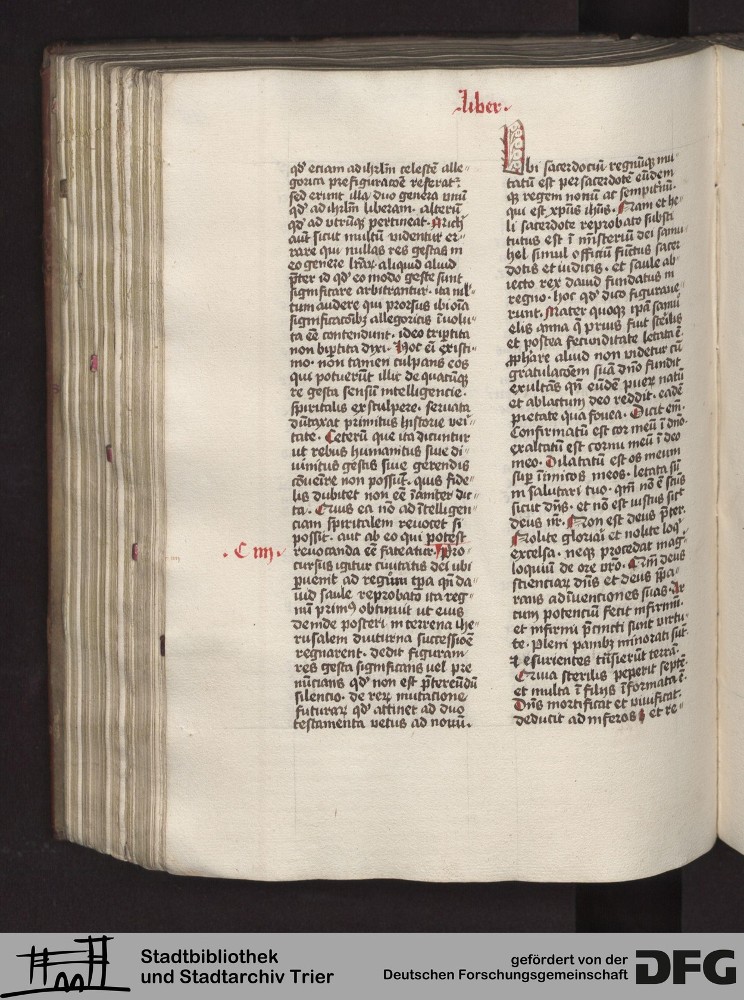 liber
qd' etiam ad ihrlm celestē alle
gorica prefiguracōe referat².
sed erunt illa duo genera unū
qd' ad ihrlm liberam. alterū
qd' ad utrūq; pertineat. Mich
aut sicut multū videntur er
rare qui nullas res gestas in
eo genere lrar aliquid aliud
pter id qd' eo modo geste sunt
significare arbitrantur. ita ml
tum audere qui prorsus ibi oīa
significatōib; allegoricis īuolu
ta eē contendunt. ideo triptita
non biptita dixi. Hoc eī existi
mo. non tamen culpans eos
qui potuerūt illic de quacūq;
re gesta sensū intelligencie
spiritalis exsculpere. seruata
dūtaxat primitus historie veri
tate. Ceterū que ita dicuntur
ut rebus humanitus siue di
uinitus gestis siue gerendis
cōuenire non possut. quis fide
lis dubitet non eē īaniter dic
ta. Cuius ea nō ad ītelligen
ciam spiritalem reuocet si
possit. aut ab eo qui potest
. C iiij . reuocanda eē fateatur. Pro
cursus igitur ciuitatis dei ubi
puenit ad regum tpa qn da
uid saule reprobato ita reg
nū primo obtinuit ut eius
deinde posteri in terrena ihe
rusalem diuturna successioē
regnarent. dedit figuram
res gesta significans uel pre
nūcians qd' non est ptereundū
silencio. de rerz mutacione
futurarz qd' attinet ad duo
testamenta vetus ad nouū.
Ubi sacerdociū regnūq; mu
tatū est per sacerdotē eūdem
q; regem nouū ac sempitnū.
qui est xpus ihus. Nam et he
li sacerdote reprobato substi
tutus est ī misteriū dei samu
hel simul officiū functus sacer
dotis et iudicis. et saule ab
iecto rex dauid fundatus in
regno. hoc qd' dico figuraue
runt. Mater quoq; ipā samu
elis anna q prius fuit sterilis
et postea fecunditate letata ē.
pphare aliud non videtur cū
gratulacōem suā dno fundit
exultās qn eūdē puerz natū
et ablactum deo reddit. eadē
pietate qua fouea. Dicit em
Confirmatū est cor meū ī dno.
exaltatū est cornu meū ī deo
meo. Dilatatū est os meum
sup inimicos meos. letata sū
in salutari tuo. qm nō ē scūs
sicut dns. et nō est iustus sict
deus nr. Non est deus pter.
Nolite gloriari et nolite loq'
excelsa. neq; procedat mag
loquiū de ore vro. Qm deus
scienciarz dns et deus ppa
rans adīuentiones suas. Ar
cum potenciū fecit infirmū.
et infirmi pcincti sunt virtu
te. Pleni panib; minorati sut.
et esurientes trāsierūt terrā.
Quia sterilis peperit septē.
et multa ī filijs īformata ē.
Dns mortificat et viuificat.
deducit ad inferos et re
Stadtbibliothek
und Stadtarchiv Trier
gefördert von der
Deutschen Forschungsgemeinschaft
DFG